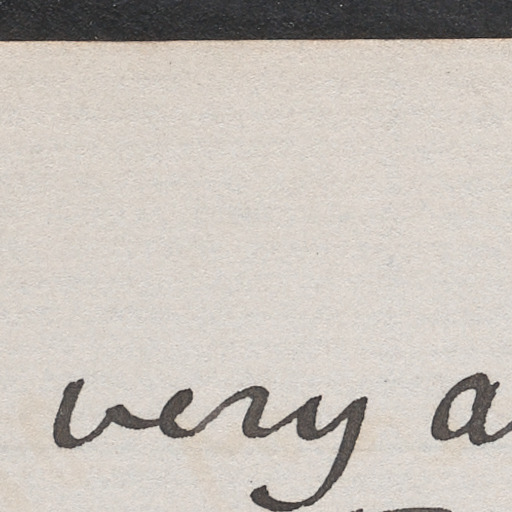 very a